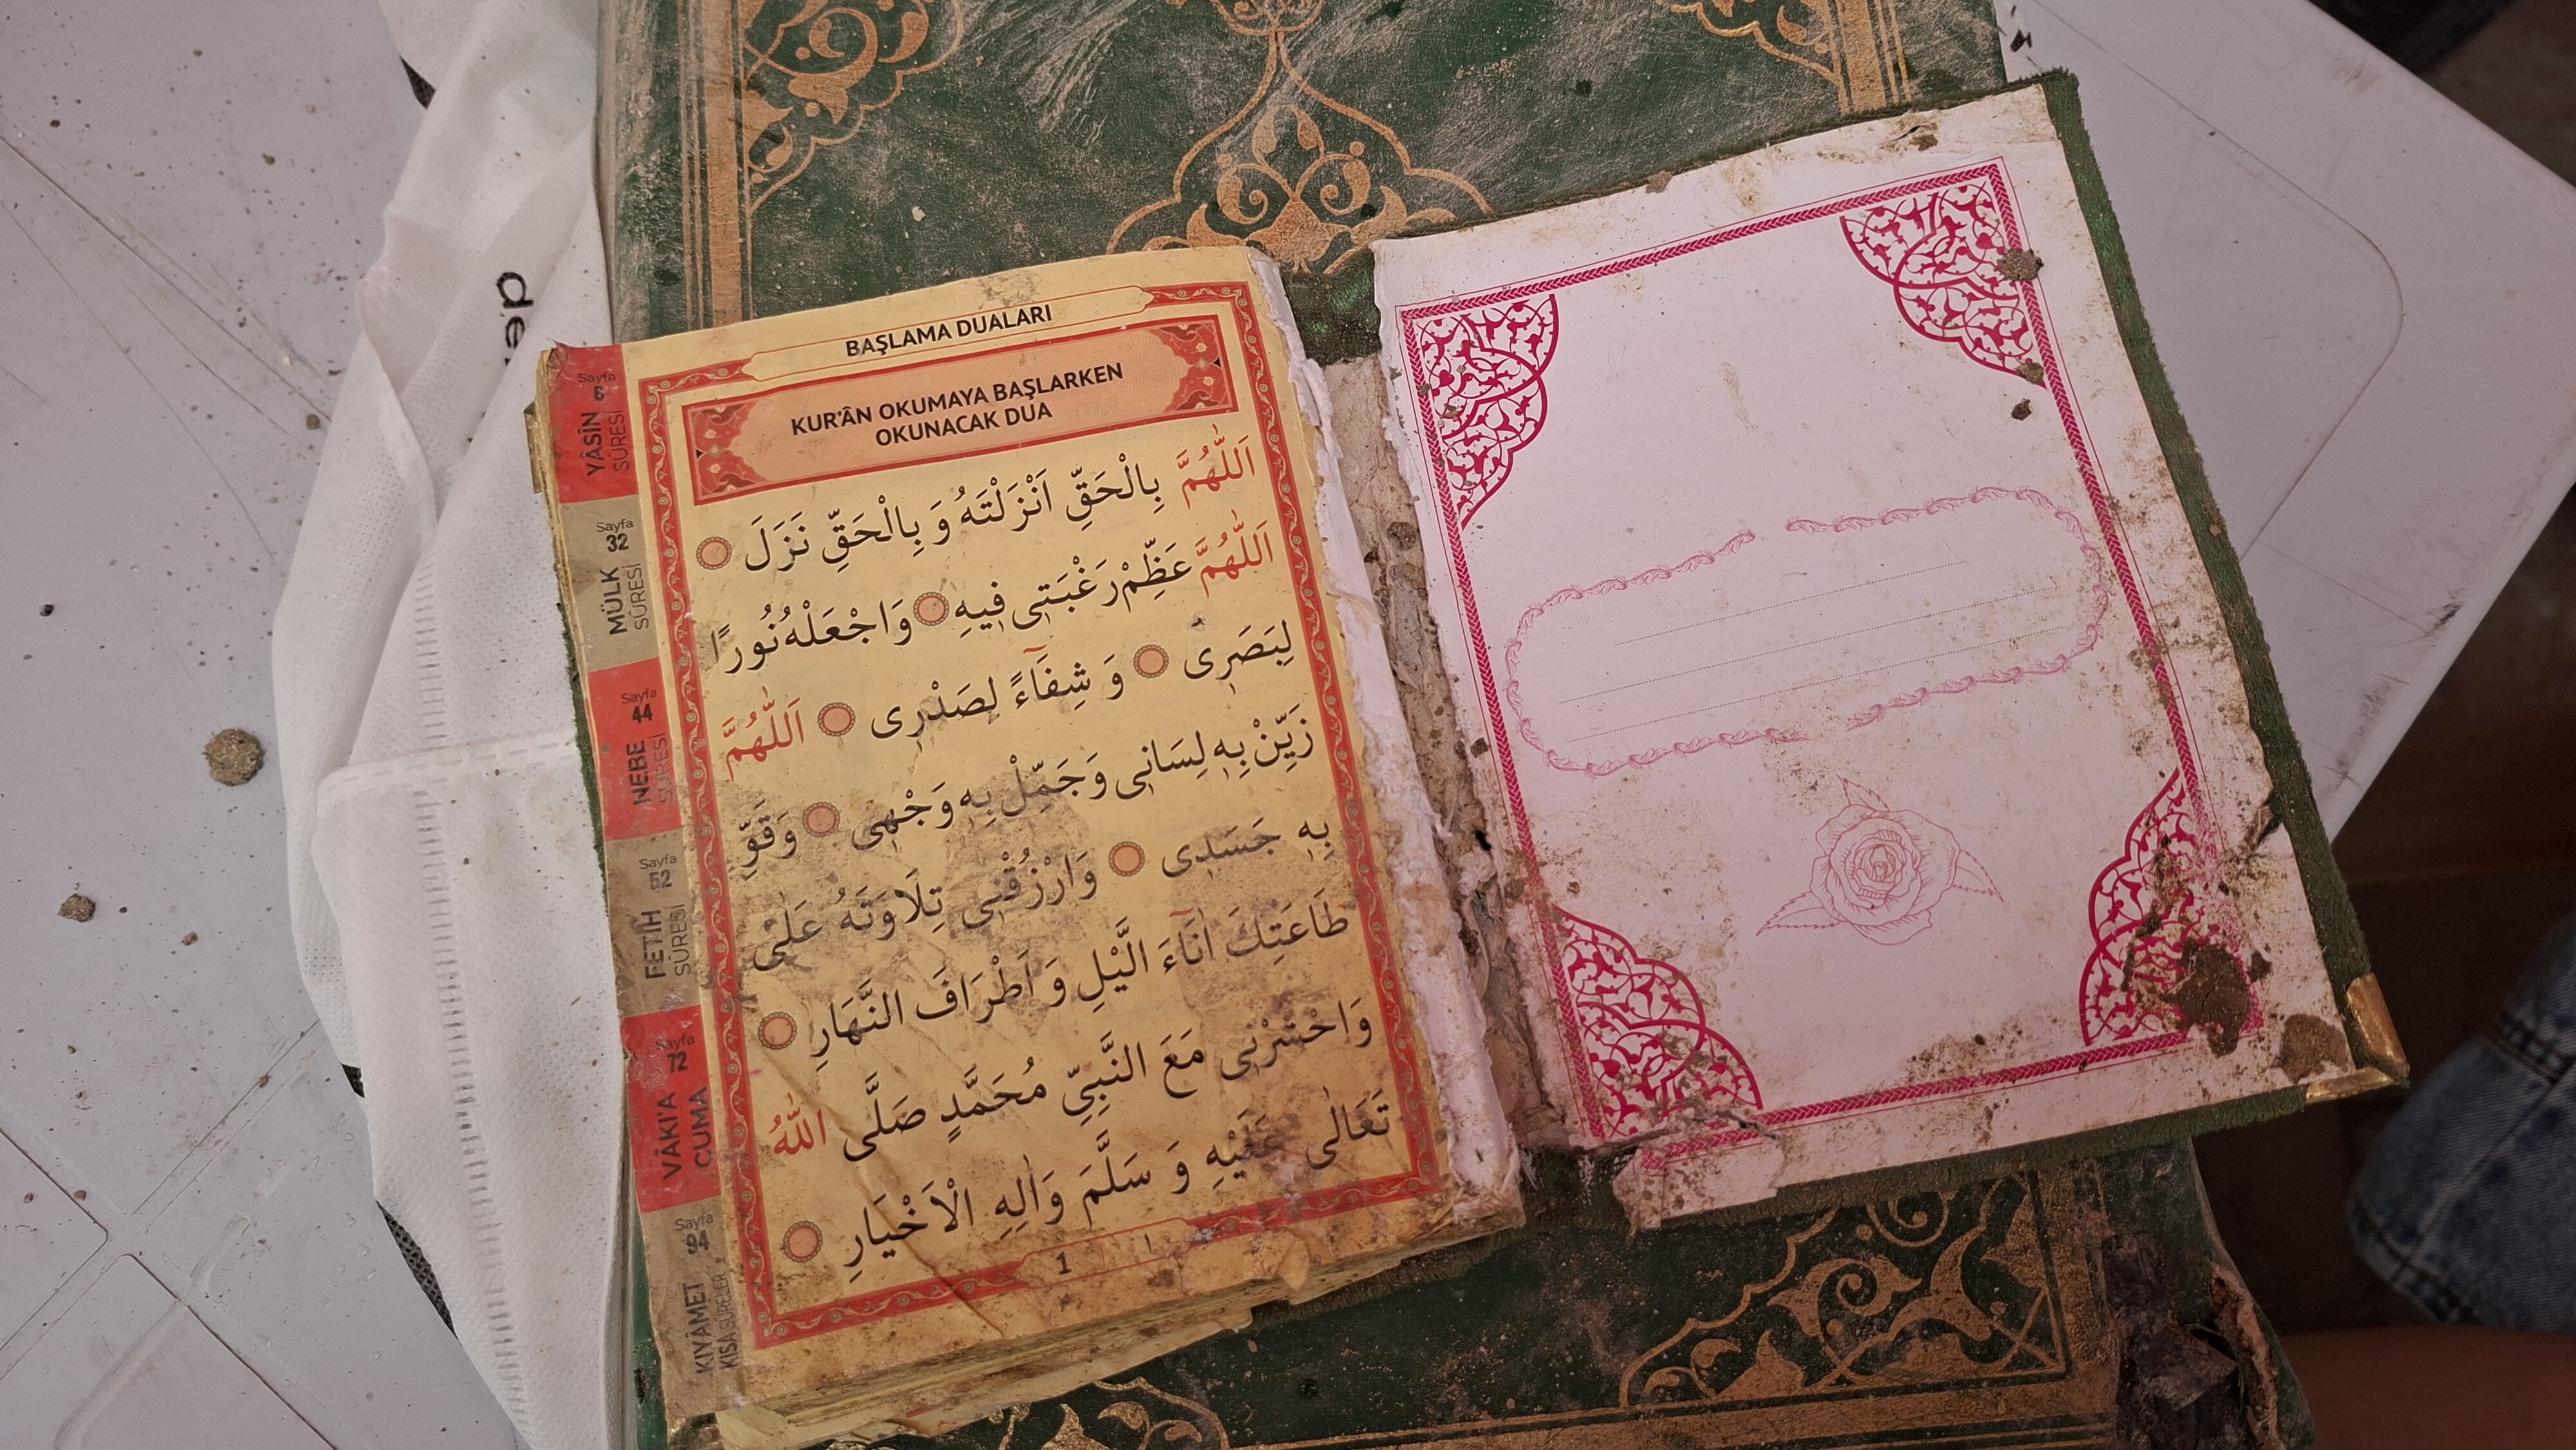 BAŞLAMA DUALARI
KUR'ÂN OKUMAYA BAŞLARKEN
OKUNACAK DUA
اَللّٰهُمَّ بِالْحَقِّ اَنْزَلْتَهُ وَ بِالْحَقِّ نَزَلَ
اَللّٰهُمَّ عَظِّمْ رَغْبَتٖى فٖيهِ وَاجْعَلْهُ نُورًا
لِبَصَرٖى وَ شِفَٓاءً لِصَدْرٖى اَللّٰهُمَّ
زَيِّنْ بِهٖ لِسَانٖى وَجَمِّلْ بِهٖ وَجْهٖى وَقَوِّ
بِهٖ جَسَدٖى وَارْزُقْنٖى تِلَاوَتَهُ عَلٰى
طَاعَتِكَ اٰنَٓاءَ الَّيْلِ وَ اَطْرَافَ النَّهَارِ
وَاحْشُرْنٖى مَعَ النَّبِىِّ مُحَمَّدٍ صَلَّى اللّٰهُ
تَعَالٰى عَلَيْهِ وَ سَلَّمَ وَاٰلِهِ الْاَخْيَارِ
1 ١
Sayfa 6
YÂSÎN
SÛRESİ
Sayfa 32
MÜLK
SÛRESİ
Sayfa 44
NEBE
SÛRESİ
Sayfa 52
FETİH
SÛRESİ
Sayfa 72
VÂKI'A
CUMA
Sayfa 94
KIYÂMET
KISA SÛRELER